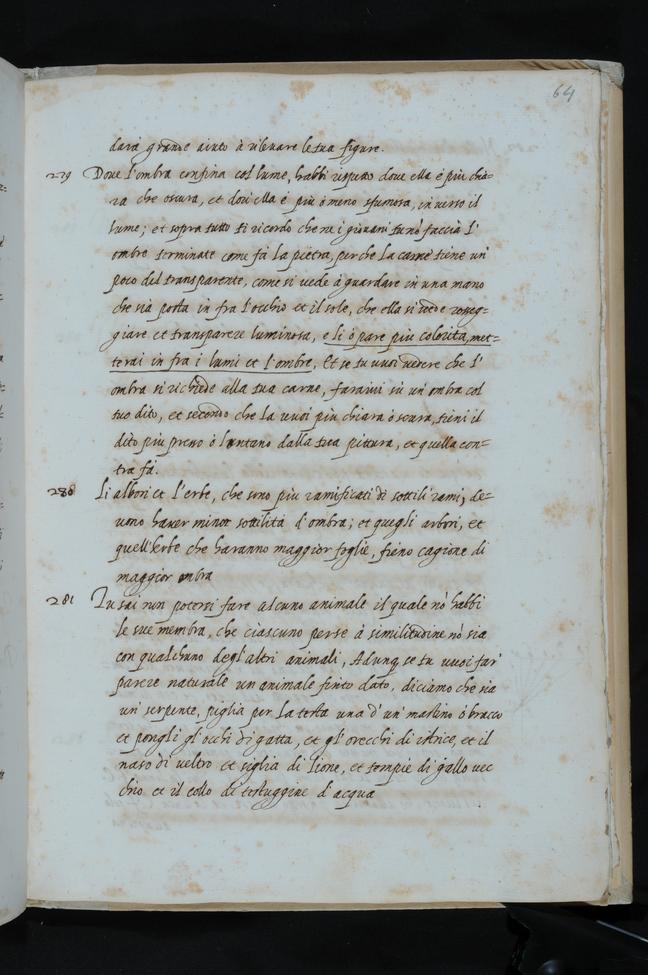 64
dara grande aiuto à rileuare le tua figure.
279 Doue l'ombra confina col lume, habbi rispetto doue ella é piu chia=
ra che oscura, et doue ella é piu ò meno sfumosa, in uerso il
lume; et sopra tutto ti ricordo che ne i giouani tu nò faccia l'
ombre terminate come fà la pietra, perche la carne tiene un'
poco del transparente, come si uede à guardare in una mano
che sia posta in fra l'occhio et il sole, che ella si uede rosseg=
giare et transparere luminosa, e li ò pare piu colorita, met=
terai in fra i lumi et l'ombre, Et se tu uuoi uedere che l'
ombra si richiede alla tua carne, faraiui sù un' ombra col
tuo dito, et secondo che la uuoi piu chiara ò scura, tieni il
dito piu presso ò lontano dalla tua pittura, et quella con=
tra fà.
280 Li albori et l'erbe, che sono piu ramificati di sottili rami, de=
uono hauer minor sottilità d'ombra; et quegli arbori, et
quell'erbe che haranno maggior foglie, fieno cagione di
maggior ombra
281 Tu sai non potersi fare alcuno animale il quale nò habbi
le sue membra, che ciascuno perse à similitudine nò sia
con qualchuno degl'altri animali, Adunq se tu uuoi far'
parere naturale un animale finto dato, diciamo che sia
un' serpente, piglia per la testa una d'un' mastino ò bracco
et pongli gl'occhi di gatta, et gl'orecchi di istrice, et il
naso di ueltro et ciglia di lione, et tempie di gallo uec
chio et il collo di testuggine d'acqua